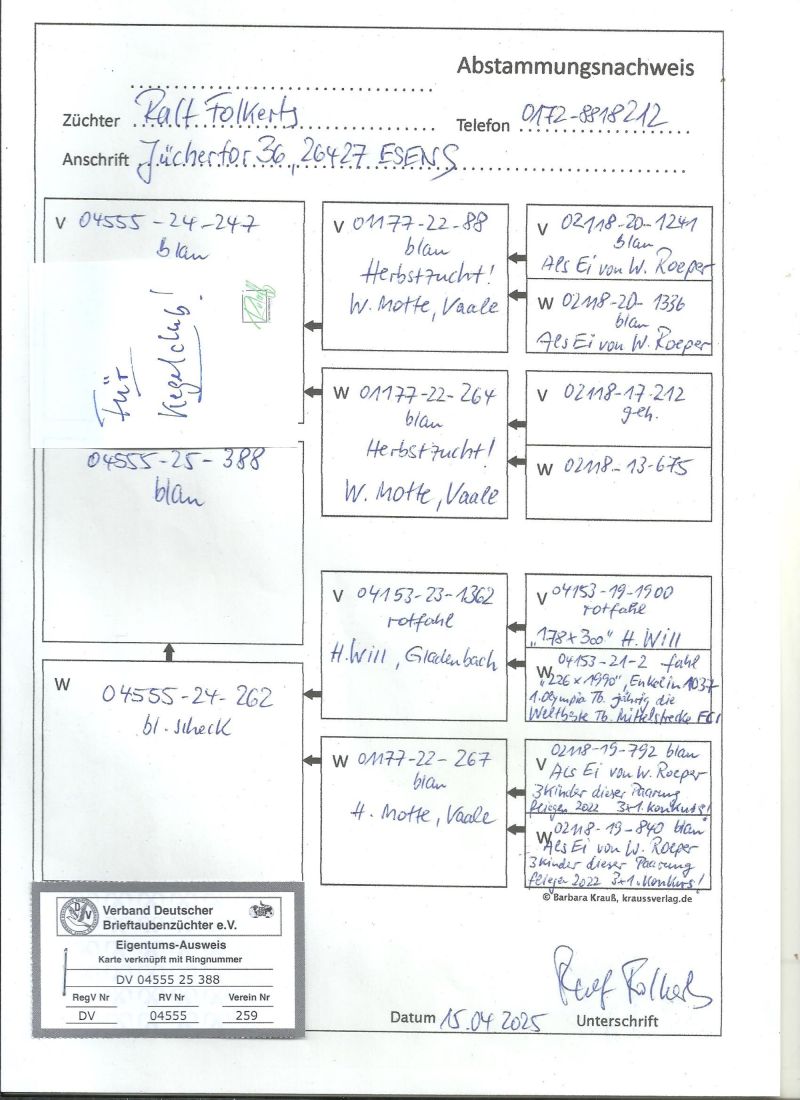 Abstammungsnachweis
Züchter Ralf Folkerts Telefon 0172-8818212
Anschrift Jüchertor 36, 26427 ESENS
V 04555-24-247
blau
Für
Kegelclub!
04555-25-388
blau
W
04555-24-262
bl. scheck
V 01177-22-88
blau
Herbstzucht!
W. Motte, Vaale
W 01177-22-264
blau
Herbstzucht!
W. Motte, Vaale
V 04153-23-1362
rotfahl
H. Will, Gladenbach
W 01177-22-267
blau
H. Motte, Vaale
V 02118-20-1241
blau
Als Ei von W. Roeper
W 02118-20-1336
blau
Als Ei von W. Roeper
V 02118-17-212
geh.
W 02118-13-675
V 04153-19-1900
rotfahl
"178x300" H. Will
W 04153-21-2 fahl
"226x1990", Enkelin 1037
1. Olympia Tb. jährig, die
Weltbeste Tb. Mittelstrecke FCI
V 02118-19-792 blau
Als Ei von W. Roeper
3 Kinder dieser Paarung
fliegen 2022 3x1. Konkurs!
W 02118-19-840 blau
Als Ei von W. Roeper
3 Kinder dieser Paarung
fliegen 2022 3x1. Konkurs!
© Barbara Krauß, kraussverlag.de
Verband Deutscher
Brieftaubenzüchter e.V.
Eigentums-Ausweis
Karte verknüpft mit Ringnummer
DV 04555 25 388
RegV Nr RV Nr Verein Nr
DV 04555 259
Ralf Folkerts
Datum 15.04.2025 Unterschrift